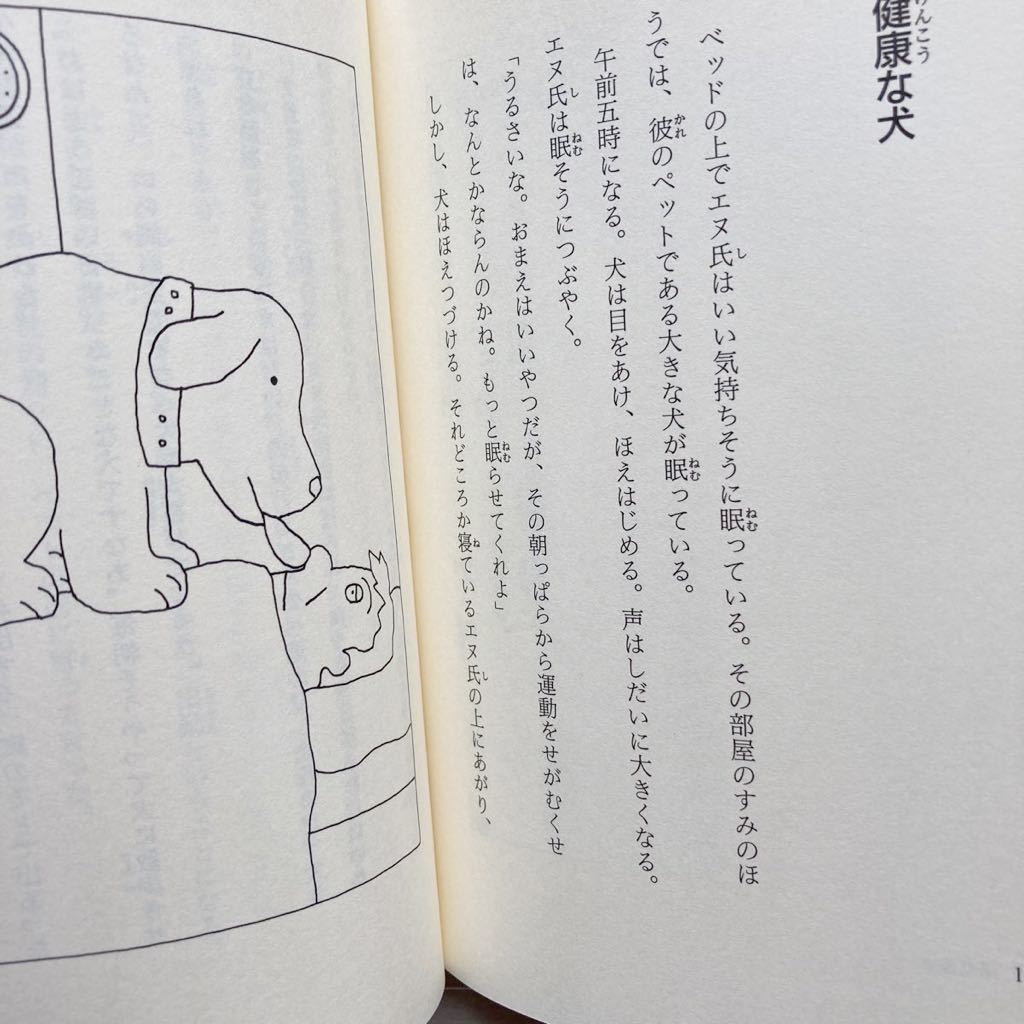 健康な犬
ベッドの上でエヌ氏はいい気持ちそうに眠っている。その部屋のすみのほ
うでは、彼のペットである大きな犬が眠っている。
午前五時になる。犬は目をあけ、ほえはじめる。声はしだいに大きくなる。
エヌ氏は眠そうにつぶやく。
「うるさいな。おまえはいいやつだが、その朝っぱらから運動をせがむくせ
は、なんとかならんのかね。もっと眠らせてくれよ」
しかし、犬はほえつづける。それどころか寝ているエヌ氏の上にあがり、